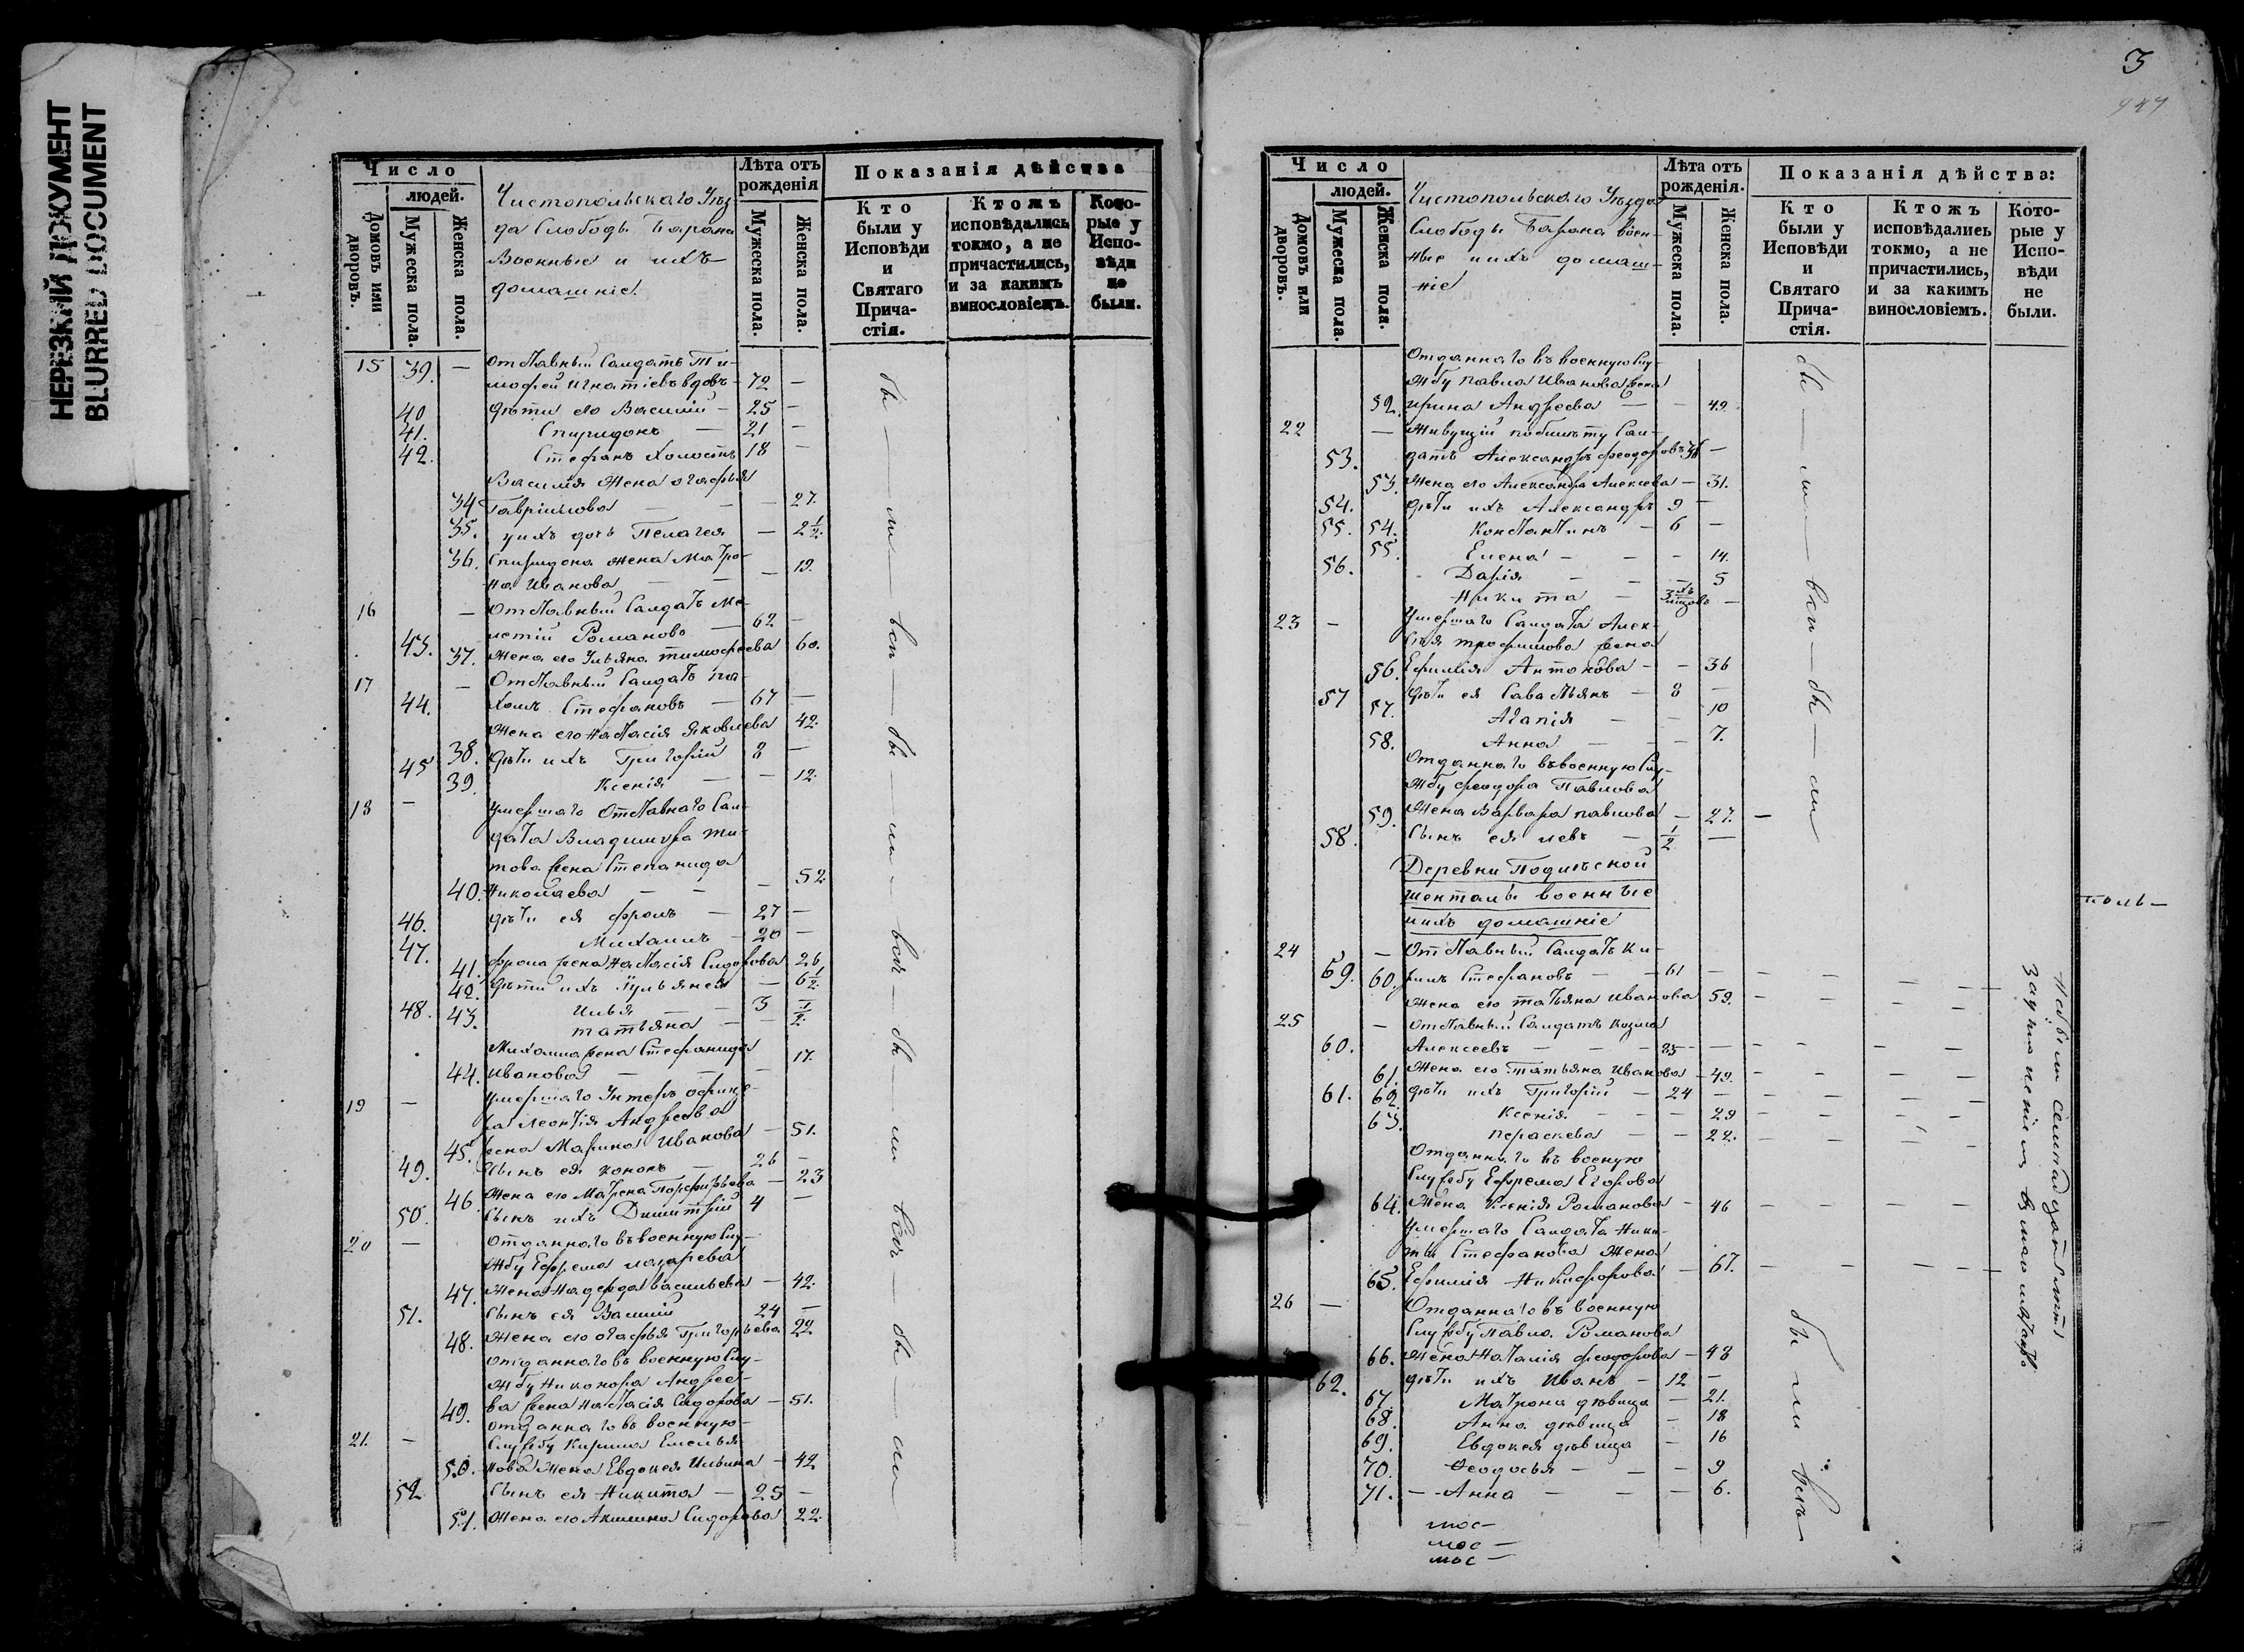 НЕРЕЗКИЙ ДОКУМЕНТ
BLURRED DOCUMENT
Число
людей.
Домовъ или дворовъ.
Мужеска пола.
Женска пола.
Чистопольскаго Уѣз-
да Слободы Барана
Военные и ихъ
домашніе.
Лѣта отъ рожденія
Мужеска пола.
Женска пола.
Показанія дѣйства
Кто были у Исповѣди и Святаго Причастія.
Ктожъ исповѣдались токмо, а не причастились, и за какимъ винословіемъ.
Которые у Исповѣди не были.
15 39. — Отставный Салдатъ Ти-
мофей Игнатіевъ вдовъ - 72 —
40 дѣти его Василий — 25 —
41. Спиридонъ — 21 —
42. Стефанъ Холостъ 18 —
Василія Жена Агафья
34 Гавріилова — — 27.
35. у ихъ дочь Пелагея — 2 1/2.
36. Спиридона жена Матро-
на Иванова — — 19.
16 — Отставный Салдатъ Ме-
43. летій Романовъ — 62 —
37. Жена его Ульяна тимофеева 60.
17 — Отставный Салдатъ Па-
44. хомъ Стефановъ — 67 —
Жена его Настасія Яковлева 42.
45 38. дѣти ихъ Григорій 8 —
39. Ксенія — — 12.
18 — Умершаго Отставнаго Сал-
дата Владимира Ти-
това жена Степанида
40. Николаева — — — 52
46. дѣти ея фролъ — 27 —
47. Михаилъ — 20 —
41. фрола жена Настасія Сидорова 26
42. дѣти ихъ Іульянея — 6 1/2.
48. 43. Илья — — 3
татьяна — — 1/2.
Михаила жена Стефанида 17.
44. Иванова — — —
19 — Умершаго Унтеръ офице-
ра Леонтія Андреева
45. жена Марина Иванова — 51.
49. Сынъ ея кононъ — 26 —
46. Жена его Матрена Порфирьева — 23
50. Сынъ ихъ Димитрій 4 —
20 — Отданнаго въ военную Слу-
жбу Ефрема лазарева
47. Жена Надежда васильева — 42.
51. Сынъ ея Василій 24 —
48. Жена его Агафья Григорьева 22
Отданнаго въ военную Слу-
жбу Никонора Андрее-
49. ва жена Настасія Сидорова — 51.
Отданнаго въ военную
21. — Службу Кирила Емелья
50. нова Жена Евдокея Ильина — 42
52 Сынъ ея Никита — 25 —
51. Жена его Акилина Сидорова 22.
бы — ли — вси — бы — ли — вси — бы — ли — вси — бы — ли
3
Число
людей.
Домовъ или дворовъ.
Мужеска пола.
Женска пола.
Чистопольскаго Уѣзда
Слободы Барана воен-
ные и ихъ домаш-
ніе
Лѣта отъ рожденія.
Мужеска пола.
Женска пола.
Показанія дѣйства:
Кто были у Исповѣди и Святаго Причастія.
Ктожъ исповѣдались токмо, а не причастились, и за какимъ винословіемъ.
Которые у Исповѣди не были.
Отданнаго въ военную Слу-
жбу павла Иванова жена
52. ирина Андреева — — 49.
22 — Живущій побилѣту Сал-
53. датъ Александръ феодоровъ 36 —
53. Жена его Александра Алексеева — 31.
54. дѣти ихъ Александръ 9 —
55. 54. Константинъ — 6 —
55. Елена — — — 14.
56. Дарія — — — 5
Никита —
23 — Умершаго Салдата Алек-
сѣя трофимова жена
56. Ефимія Антонова — — 36
57 дѣти ея Савастьянъ — 8 —
57. Агапія — — 10
58. Анна — — 7.
Отданнаго въ военную Слу-
жбу феодора Павлова
59. Жена Варвара павлова — 27. —
58. Сынъ ея левъ — 1/2 —
Деревни Подлѣсной
шенталы военные
и ихъ домашніе
24 — Отставный Салдатъ Ки-
59. 60. рилъ Стефановъ — — 61 —
Жена его татьяна Иванова 59.
25 — Отставный Салдатъ козма
60. Алексеевъ — — — 85 —
61. Жена его татьяна Иванова — 49.
61. 62. дѣти ихъ Григорій — 24 —
63. Ксенія — — — 29
Параскева — — 22.
Отданнаго въ военую
Службу Ефрема Егорова
64. Жена Ксенія Романова — 46
Умершаго Салдата Ники-
ты Стефанова Жена
65. Ефимія Никифорова — 67.
26 — Отданнаго въ военную
Службу Павла Романова
66. Жена Наталія феодорова — 48
62. дѣти ихъ Иванъ — 12 —
67. Матрона дѣвица — 21.
68. Анна дѣвица — 18
69. Евдокея дѣвица — 16
70. Феодосья — — — 9
71. — Анна — — — 6.
бы — ли — вси — бы — ли